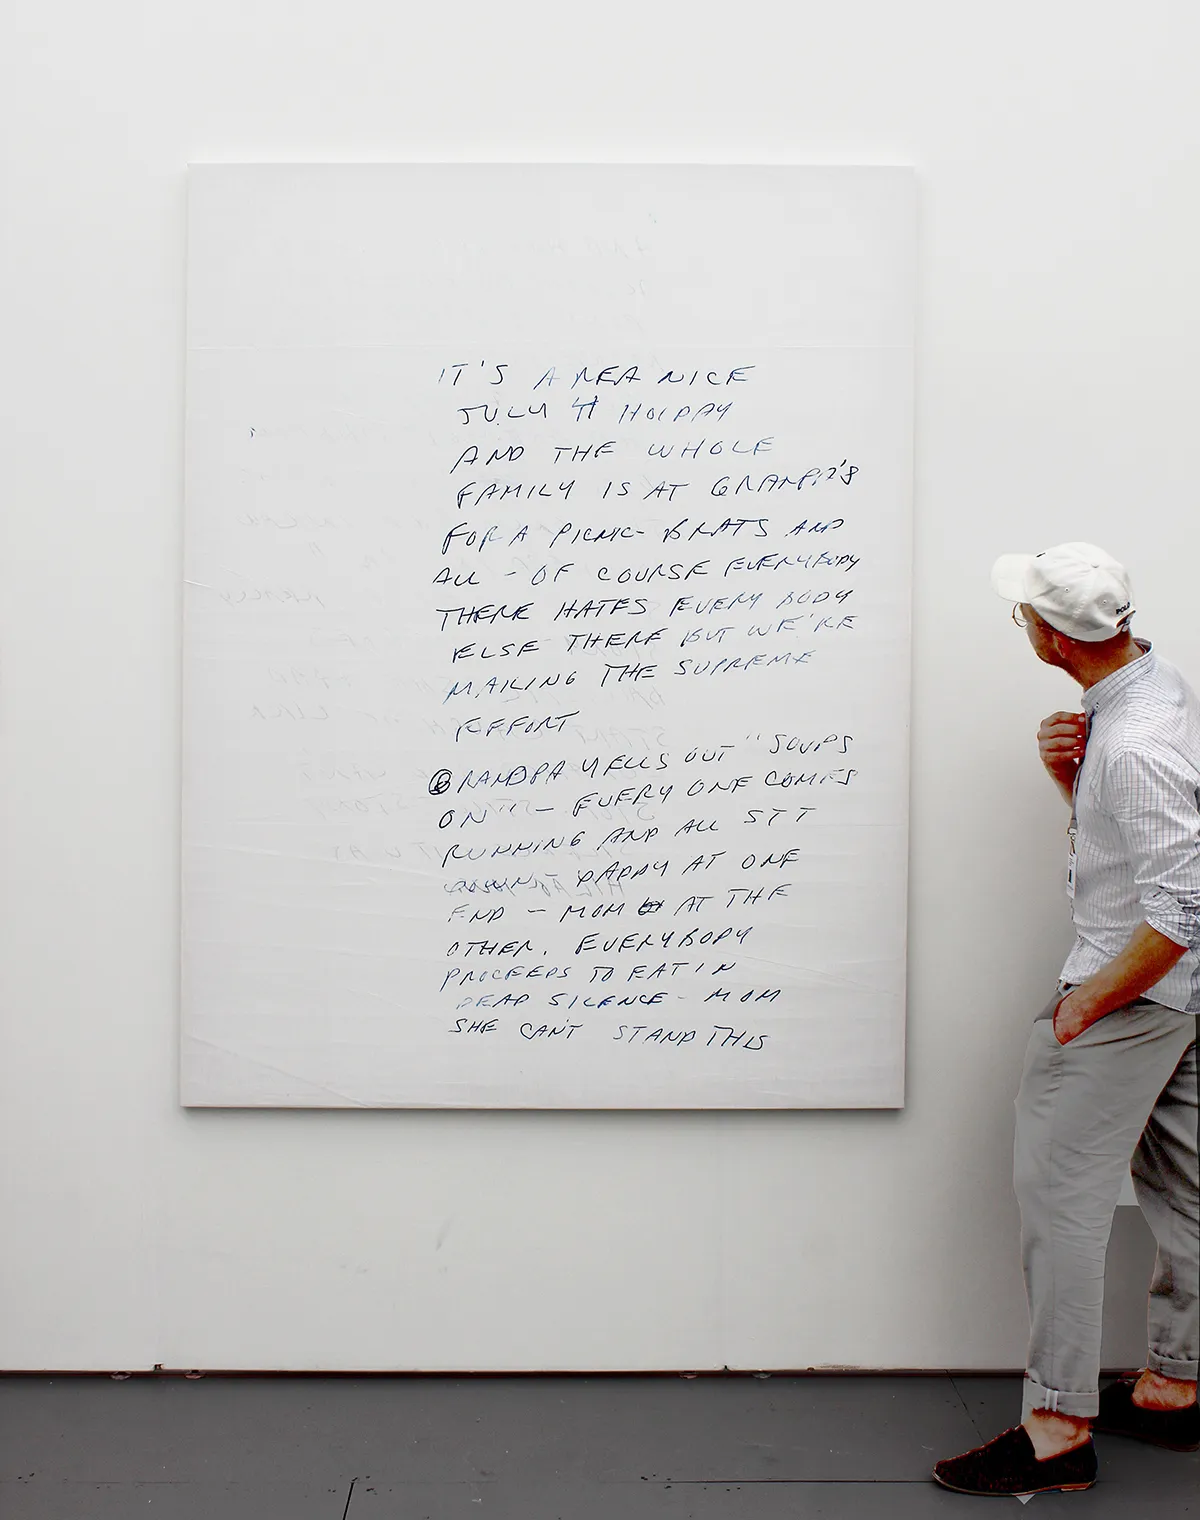 IT'S A REA NICE
JULY 4 HOLDAY
AND THE WHOLE
FAMILY IS AT GRANDPA'S
FOR A PICNIC - BRATS AND
ALL - OF COURSE EVERYBODY
THERE HATES EVERY BODY
ELSE THERE BUT WE'RE
MAKING THE SUPREME
EFFORT
GRANDPA YELLS OUT "SOUPS
ON" - EVERY ONE COMES
RUNNING AND ALL SIT
DOWN - DADDY AT ONE
END - MOM AT THE
OTHER. EVERYBODY
PROCEEDS TO EAT IN
DEAD SILENCE - MOM
SHE CAN'T STAND THIS
POLO